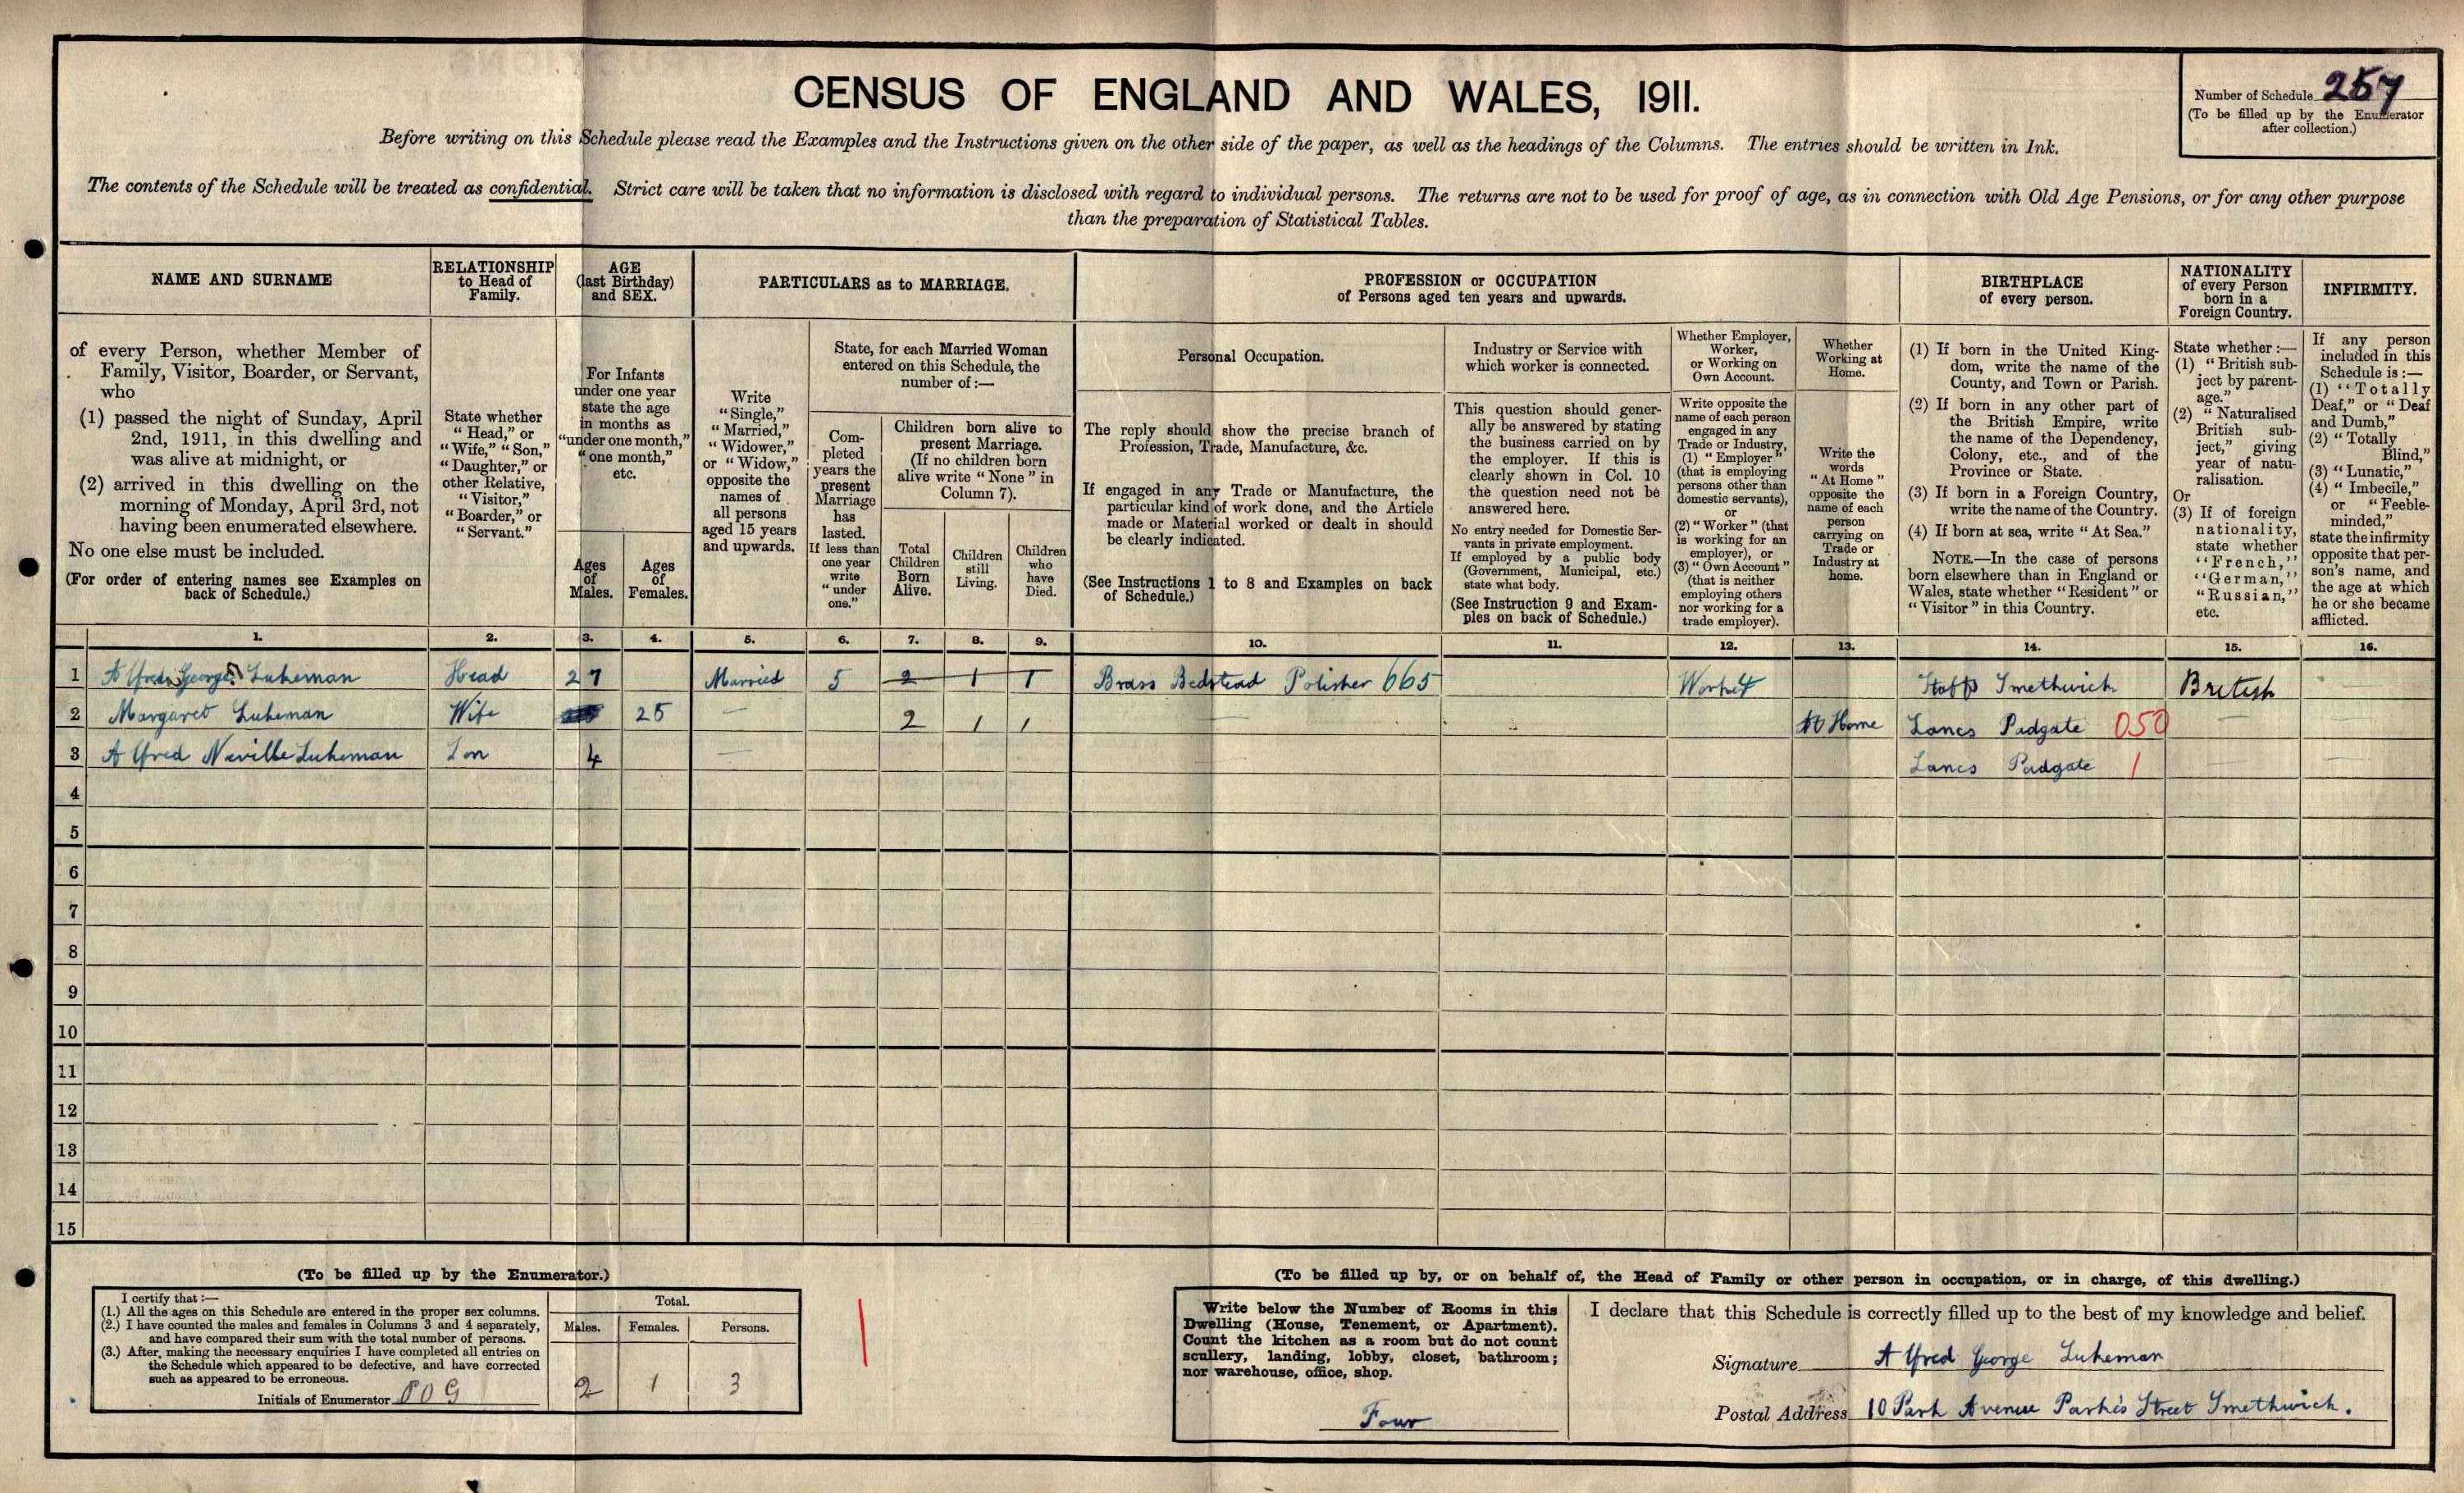 CENSUS OF ENGLAND AND WALES, 1911.
Number of Schedule 257
(To be filled up by the Enumerator
after collection.)
Before writing on this Schedule please read the Examples and the Instructions given on the other side of the paper, as well as the headings of the Columns. The entries should be written in Ink.
The contents of the Schedule will be treated as confidential. Strict care will be taken that no information is disclosed with regard to individual persons. The returns are not to be used for proof of age, as in connection with Old Age Pensions, or for any other purpose
than the preparation of Statistical Tables.
NAME AND SURNAME
of every Person, whether Member of
Family, Visitor, Boarder, or Servant,
who
(1) passed the night of Sunday, April
2nd, 1911, in this dwelling and
was alive at midnight, or
(2) arrived in this dwelling on the
morning of Monday, April 3rd, not
having been enumerated elsewhere.
No one else must be included.
(For order of entering names see Examples on
back of Schedule.)
RELATIONSHIP
to Head of
Family.
State whether
"Head," or
"Wife," "Son,"
"Daughter," or
other Relative,
"Visitor,"
"Boarder," or
"Servant."
AGE
(last Birthday)
and SEX.
For Infants
under one year
state the age
in months as
"under one month,"
"one month,"
etc.
Ages
of
Males.
Ages
of
Females.
PARTICULARS as to MARRIAGE.
Write
"Single,"
"Married,"
"Widower,"
or "Widow,"
opposite the
names of
all persons
aged 15 years
and upwards.
State, for each Married Woman
entered on this Schedule, the
number of:—
Com-
pleted
years the
present
Marriage
has
lasted.
If less than
one year
write
"under
one."
Children born alive to
present Marriage.
(If no children born
alive write "None" in
Column 7).
Total
Children
Born
Alive.
Children
still
Living.
Children
who
have
Died.
PROFESSION or OCCUPATION
of Persons aged ten years and upwards.
Personal Occupation.
The reply should show the precise branch of
Profession, Trade, Manufacture, &c.
If engaged in any Trade or Manufacture, the
particular kind of work done, and the Article
made or Material worked or dealt in should
be clearly indicated.
(See Instructions 1 to 8 and Examples on back
of Schedule.)
Industry or Service with
which worker is connected.
This question should gener-
ally be answered by stating
the business carried on by
the employer. If this is
clearly shown in Col. 10
the question need not be
answered here.
No entry needed for Domestic Ser-
vants in private employment.
If employed by a public body
(Government, Municipal, etc.)
state what body.
(See Instruction 9 and Exam-
ples on back of Schedule.)
Whether Employer,
Worker,
or Working on
Own Account.
Write opposite the
name of each person
engaged in any
Trade or Industry,
(1) "Employer"
(that is employing
persons other than
domestic servants),
or
(2) "Worker" (that
is working for an
employer), or
(3) "Own Account"
(that is neither
employing others
nor working for a
trade employer).
Whether
Working at
Home.
Write the
words
"At Home"
opposite the
name of each
person
carrying on
Trade or
Industry at
home.
BIRTHPLACE
of every person.
(1) If born in the United King-
dom, write the name of the
County, and Town or Parish.
(2) If born in any other part of
the British Empire, write
the name of the Dependency,
Colony, etc., and of the
Province or State.
(3) If born in a Foreign Country,
write the name of the Country.
(4) If born at sea, write "At Sea."
NOTE.—In the case of persons
born elsewhere than in England or
Wales, state whether "Resident" or
"Visitor" in this Country.
NATIONALITY
of every Person
born in a
Foreign Country.
State whether:—
(1) "British sub-
ject by parent-
age."
(2) "Naturalised
British sub-
ject," giving
year of natu-
ralisation.
Or
(3) If of foreign
nationality,
state whether
"French,"
"German,"
"Russian,"
etc.
INFIRMITY.
If any person
included in this
Schedule is:—
(1) "Totally
Deaf," or "Deaf
and Dumb,"
(2) "Totally
Blind,"
(3) "Lunatic,"
(4) "Imbecile,"
or "Feeble-
minded,"
state the infirmity
opposite that per-
son's name, and
the age at which
he or she became
afflicted.
1. 2. 3. 4. 5. 6. 7. 8. 9. 10. 11. 12. 13. 14. 15. 16.
1 Alfred George Lukeman Head 27 Married 5 2 1 1 Brass Bedstead Polisher 665 Worker Staffs Smethwick British
2 Margaret Lukeman Wife 25 — 2 1 1 At Home Lancs Padgate 050
3 Alfred Neville Lukeman Son 4 — Lancs Padgate 1
4
5
6
7
8
9
10
11
12
13
14
15
(To be filled up by the Enumerator.)
I certify that:—
(1.) All the ages on this Schedule are entered in the proper sex columns.
(2.) I have counted the males and females in Columns 3 and 4 separately,
and have compared their sum with the total number of persons.
(3.) After making the necessary enquiries I have completed all entries on
the Schedule which appeared to be defective, and have corrected
such as appeared to be erroneous.
Initials of Enumerator
Total.
Males. Females. Persons.
2 1 3
(To be filled up by, or on behalf of, the Head of Family or other person in occupation, or in charge, of this dwelling.)
Write below the Number of Rooms in this
Dwelling (House, Tenement, or Apartment).
Count the kitchen as a room but do not count
scullery, landing, lobby, closet, bathroom;
nor warehouse, office, shop.
Four
I declare that this Schedule is correctly filled up to the best of my knowledge and belief.
Signature Alfred George Lukeman
Postal Address 10 Park Avenue Parkes Street Smethwick.